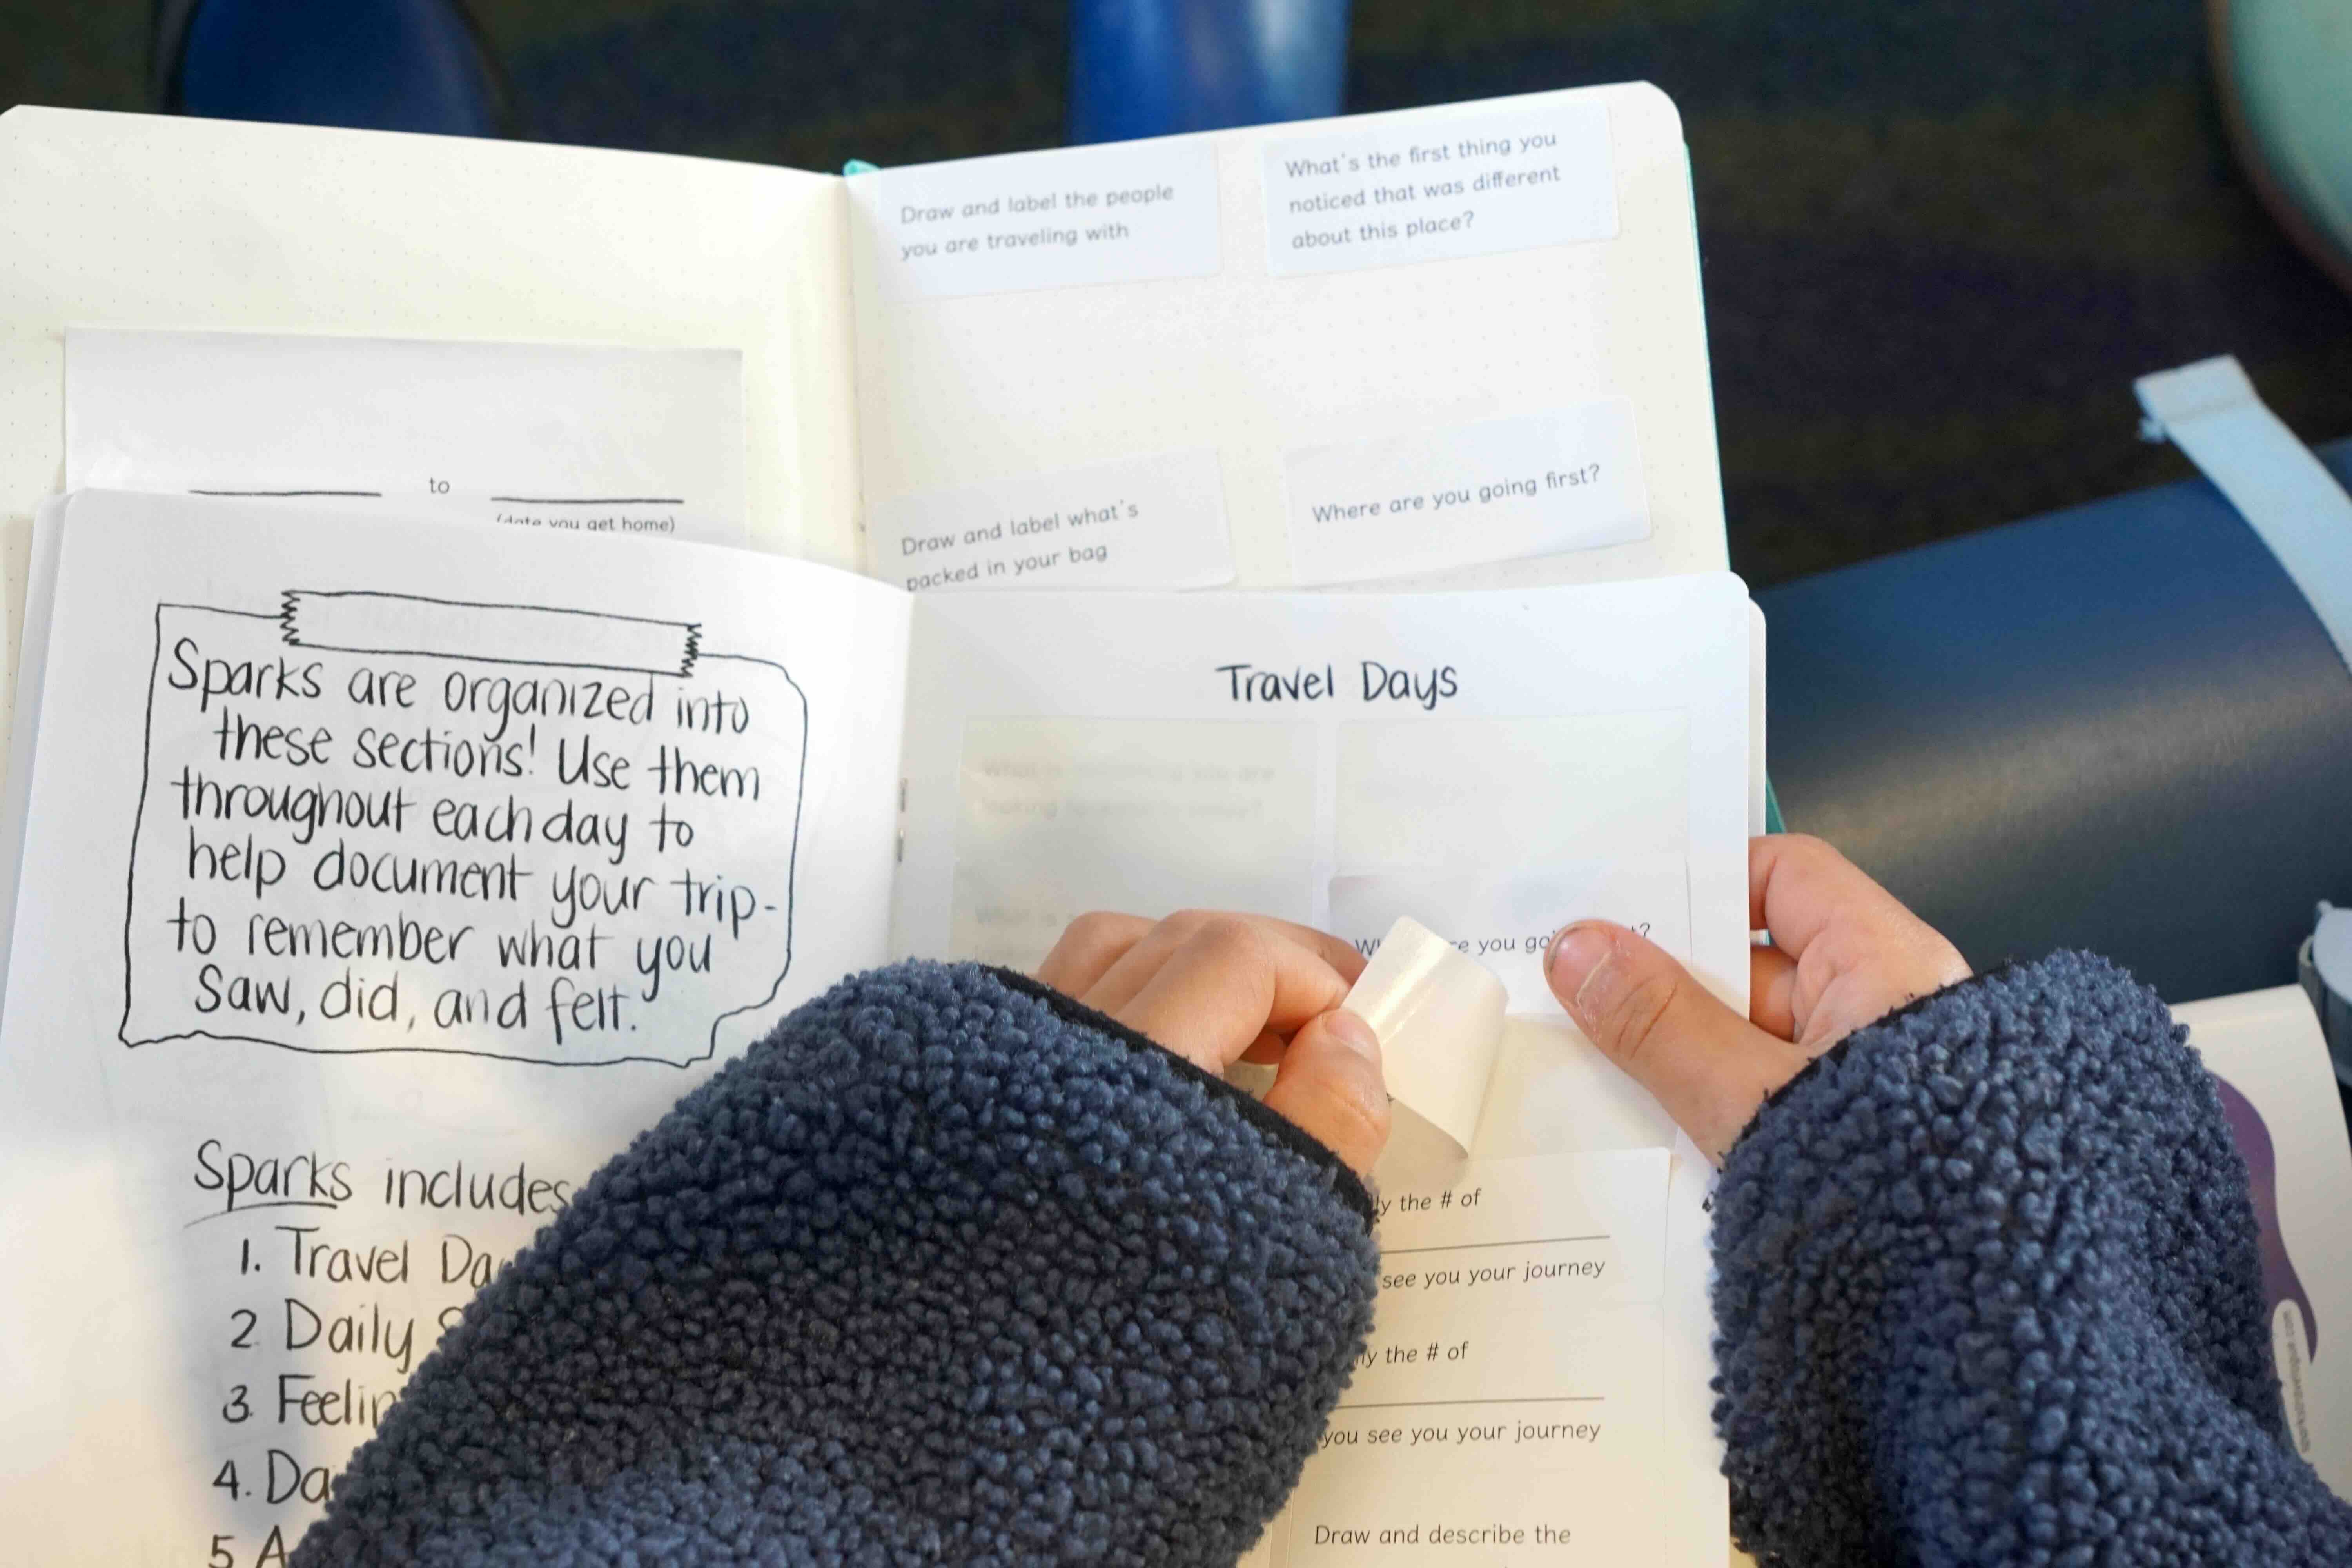 Draw and label the people
you are traveling with
What's the first thing you
noticed that was different
about this place?
to
(date you get home)
Draw and label what's
packed in your bag
Where are you going first?
Sparks are organized into
these sections! Use them
throughout each day to
help document your trip-
to remember what you
saw, did, and felt.
Sparks includes
1. Travel Da
2 Daily
3. Feelin
4. Da
5 A
Travel Days
What is something you are
e you go
?
ly the # of
see you your journey
ly the # of
you see you your journey
Draw and describe the